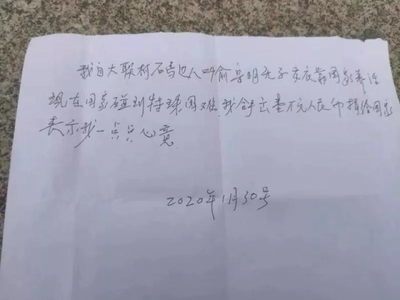 我自大联村石马边人叫俞无子女靠国家养活
现在国家碰到特殊困难我万元人民币捐给国家
表示我一点点心意
2020年1月30号